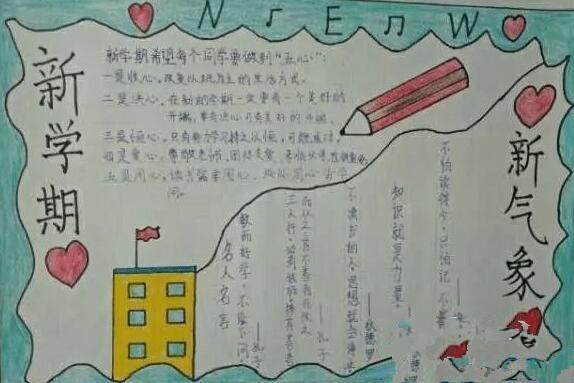 N E W
新学期
新气象
新学期希望每个同学要做到"五心":
一是收心,改变以玩为主的生活方式。
二是决心,在新的学期一定要有一个美好的
开端,要有决心
三是恒心,只有努力学习持之以恒,可能成功。
四是爱心,尊敬老师,团结友爱
五是用心,读书需要用心,处处留心皆学
问。
不怕读得少,只怕记不
知识就是力量。
不读书的人,思想就会停止
狄德罗
三人行,必有我师,择其善者
而从之,其不善者而改之
孔子
敏而好学,不耻下问。
孔子
名人名言